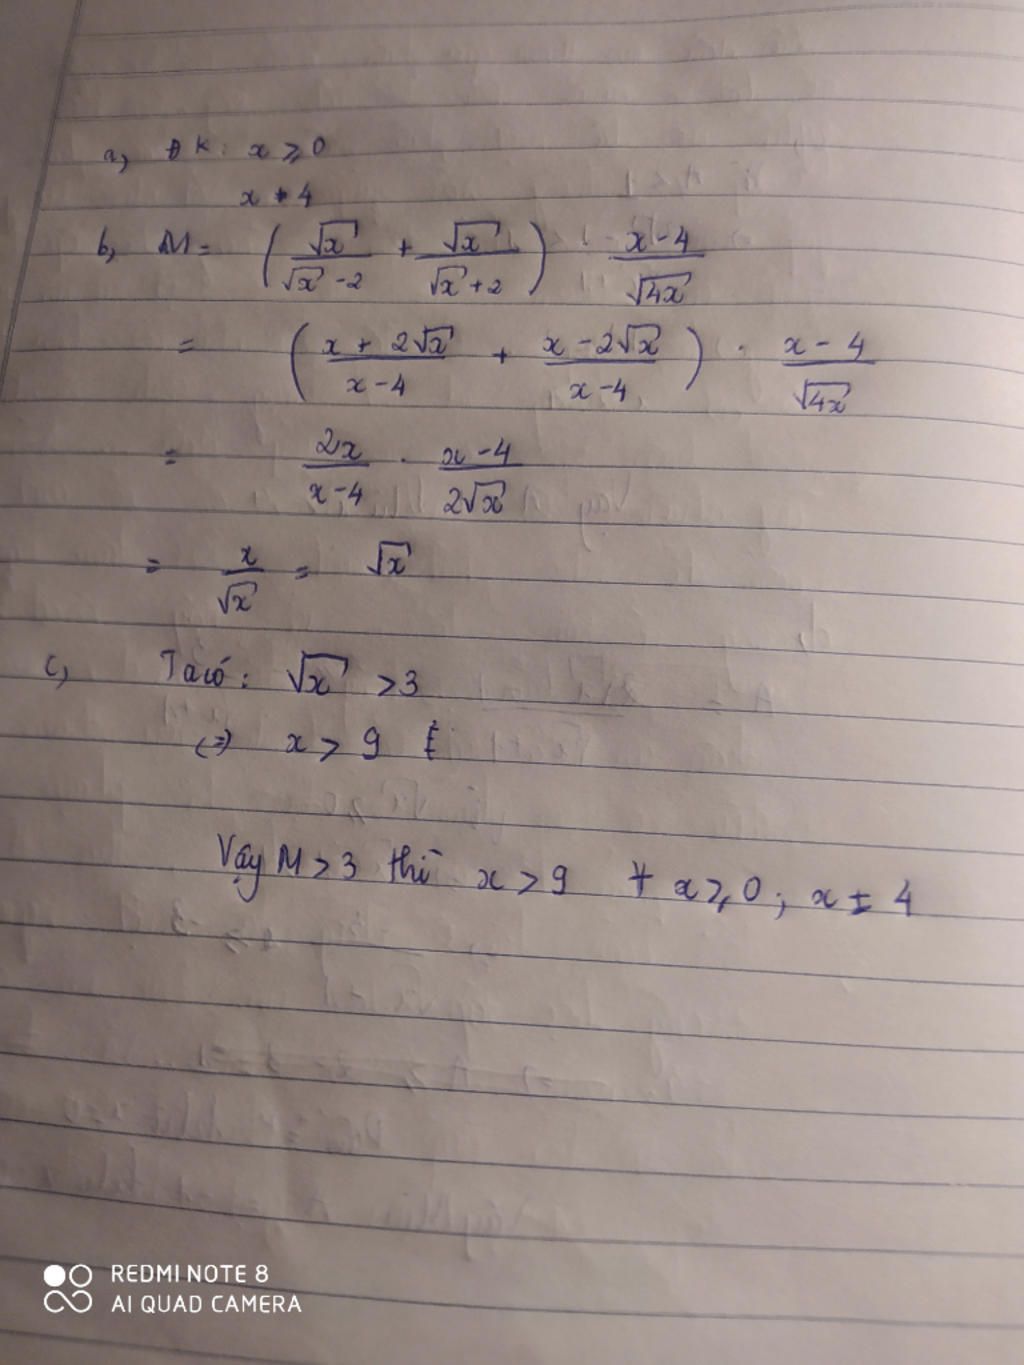 a, ĐK: x ⩾ 0
x ≠ 4
b, M = ( √x / (√x - 2) + √x / (√x + 2) ) · (x - 4) / √4x
= ( (x + 2√x) / (x - 4) + (x - 2√x) / (x - 4) ) · (x - 4) / √4x
= 2x / (x - 4) · (x - 4) / 2√x
= x / √x = √x
c, Ta có: √x > 3
(=) x > 9
Vậy M > 3 thì x > 9 ∀ x ⩾ 0; x ≠ 4
REDMI NOTE 8
AI QUAD CAMERA